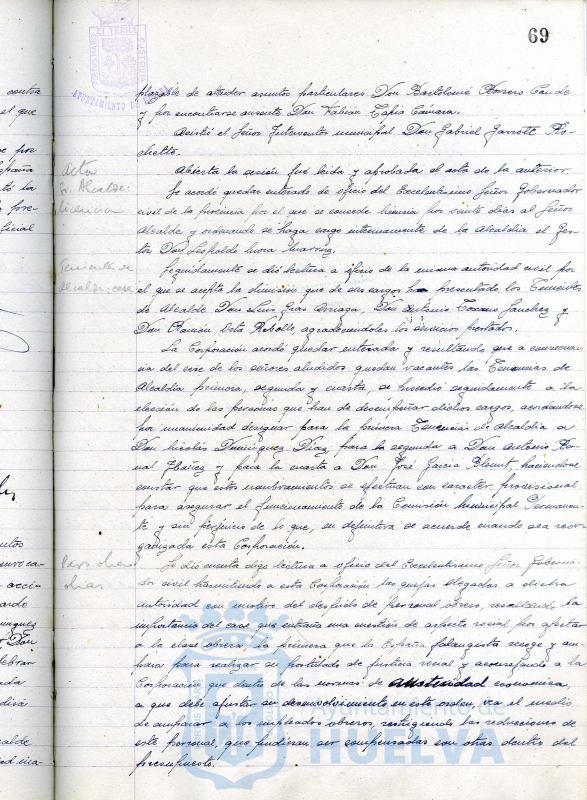 69
AYUNTAMIENTO DE HUELVA
plazable de atender asuntos particulares Don Bartolomé Borrero Conde
y por encontrarse ausente Don Fabián Tapia Cámara.
Asistió el Señor Interventor municipal Don Gabriel Garrote
Abierta la sesión fué leida y aprobada el acta de la anterior.
Se acordó quedar enterado de oficio del Excelentísimo Señor Gobernador
civil de la provincia por el que se concede licencia por veinte dias al Señor
Alcalde y ordenando se haga cargo interinamente de la Alcaldia el Ges-
tor Don Leopoldo
Seguidamente se dió lectura a oficio de la misma autoridad civil por
el que se acepta la dimisión que de sus cargos han presentado los Tenientes
de Alcalde Don Luis Gras Arriaga, Don Antonio Sanchez y
Don Ramón Orta Rebollo, agradeciendoles los servicios prestados.
La Corporación acordó quedar enterada y resultando que a consecuen-
cia del cese de los señores aludidos quedan vacantes las Tenencias de
Alcaldia primera, segunda y cuarta, se procedió seguidamente a la
elección de las personas que han de desempeñar dichos cargos, acordandose
por unanimidad designar para la primera Tenencia de Alcaldia a
Don Nicolás Dominguez Diaz, para la segunda a Don Antonio
y para la cuarta a Don José Garcia haciendose
constar que estos nombramientos se efectuan con caracter provisional
para asegurar el funcionamiento de la Comisión Municipal Permanen-
te y sin perjuicio de lo que, en definitiva se acuerde cuando sea reor-
ganizada esta Corporación.
Se dió cuenta digo lectura a oficio del Excelentísimo Señor Goberna-
dor civil trasmitiendo a esta Corporación las quejas llegadas a dicha
autoridad con motivo del despido de personal obrero, resaltando la
importancia del caso que entraña una cuestión de aspecto social por afectar
a la clase obrera la primera que la España falangista recoge y am-
para para realizar su postulado de justicia social y aconsejando a la
Corporación que dentro de las normas de austeridad economica,
a que debe ajustar su desenvolvimiento en este orden, vea el medio
de amparar a los empleados obreros, restringiendo las reducciones de
este personal, que pudieran ser compensadas con otras dentro del
presupuesto.
Acta
Sr. Alcalde:
licencia
Tenientes de
Alcalde: cese
Ayuntamiento de
HUELVA